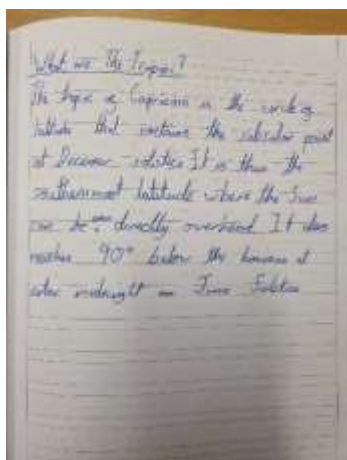 What are The Tropics?
The tropic of Capricorn is the circle of
latitude that contains the subsolar point
at December solstice It is thus the
southernmost latitude where the Sun
can be seen directly overhead It also
reaches 90° below the horizon at
solar midnight on June Solstice